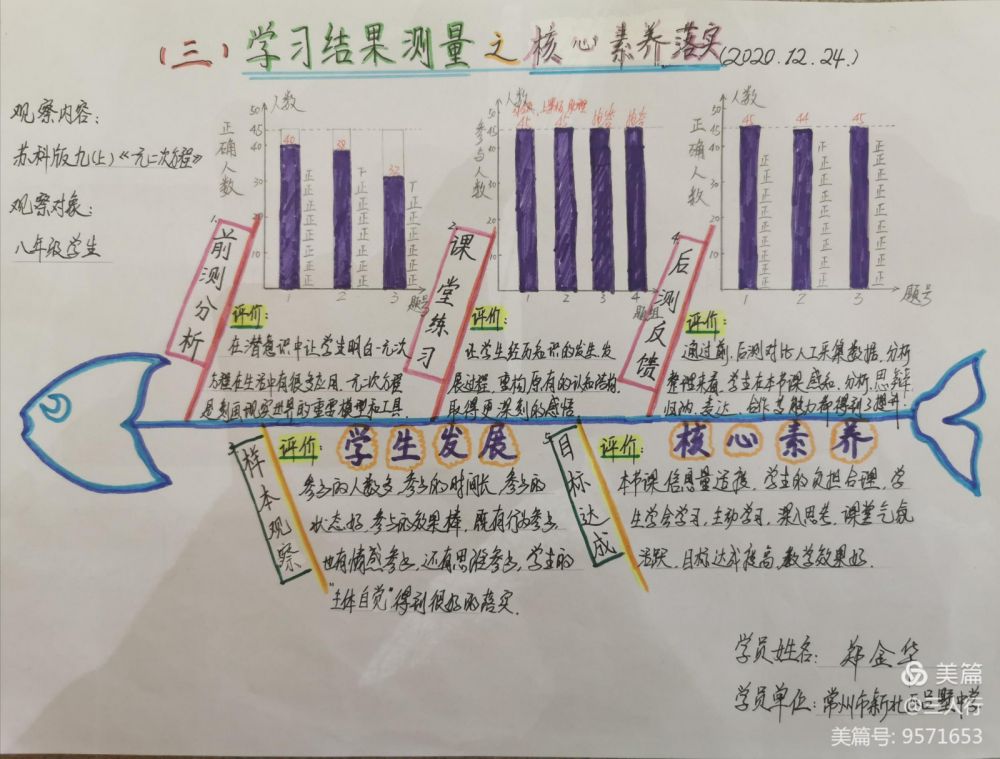 (三)学习结果测量之核心素养落实(2020.12.24.)
观察内容:
苏科版九(上)《一元二次方程》
观察对象:
八年级学生
人数
正确人数
50
45
40
30
20
10
40
38
32
正正正正正正正正
正正正正正正正
正正正正正正
1 2 3 题号
1.前测分析
评价:
在潜意识中让学生明白一元二次
方程在生活中有很多应用,一元二次方程
是刻画现实世界的重要模型和工具.
人数
参与人数
50
45
40
30
20
10
45
45
1 2 3 4
题组
2.课堂练习
评价:
让学生经历知识的发生、发
展过程,重构原有的认知结构,
取得更深刻的感悟
人数
正确人数
50
45
40
30
20
10
45
44
45
1 2 3 题号
4.后测反馈
评价:
通过前、后测对比,人工采集数据,分析
整理来看,学生在本节课感知、分析、思辨、
归纳、表达、合作等能力都得到了提升
学生发展
核心素养
样本观察
评价:
参与的人数多,参与的时间长,参与的
状态好,参与的效果棒,既有行为参与,
也有情感参与,还有思维参与,学生的
“主体自觉”得到很好的落实.
目标达成
评价:
本节课信息量适度,学生的负担合理,学
生学会学习,主动学习,深入思考,课堂气氛
活跃,目标达成度高,教学效果好.
学员姓名: 郑金华
学员单位:常州市新北区吕墅中学
美篇
@三人行
美篇号: 9571653